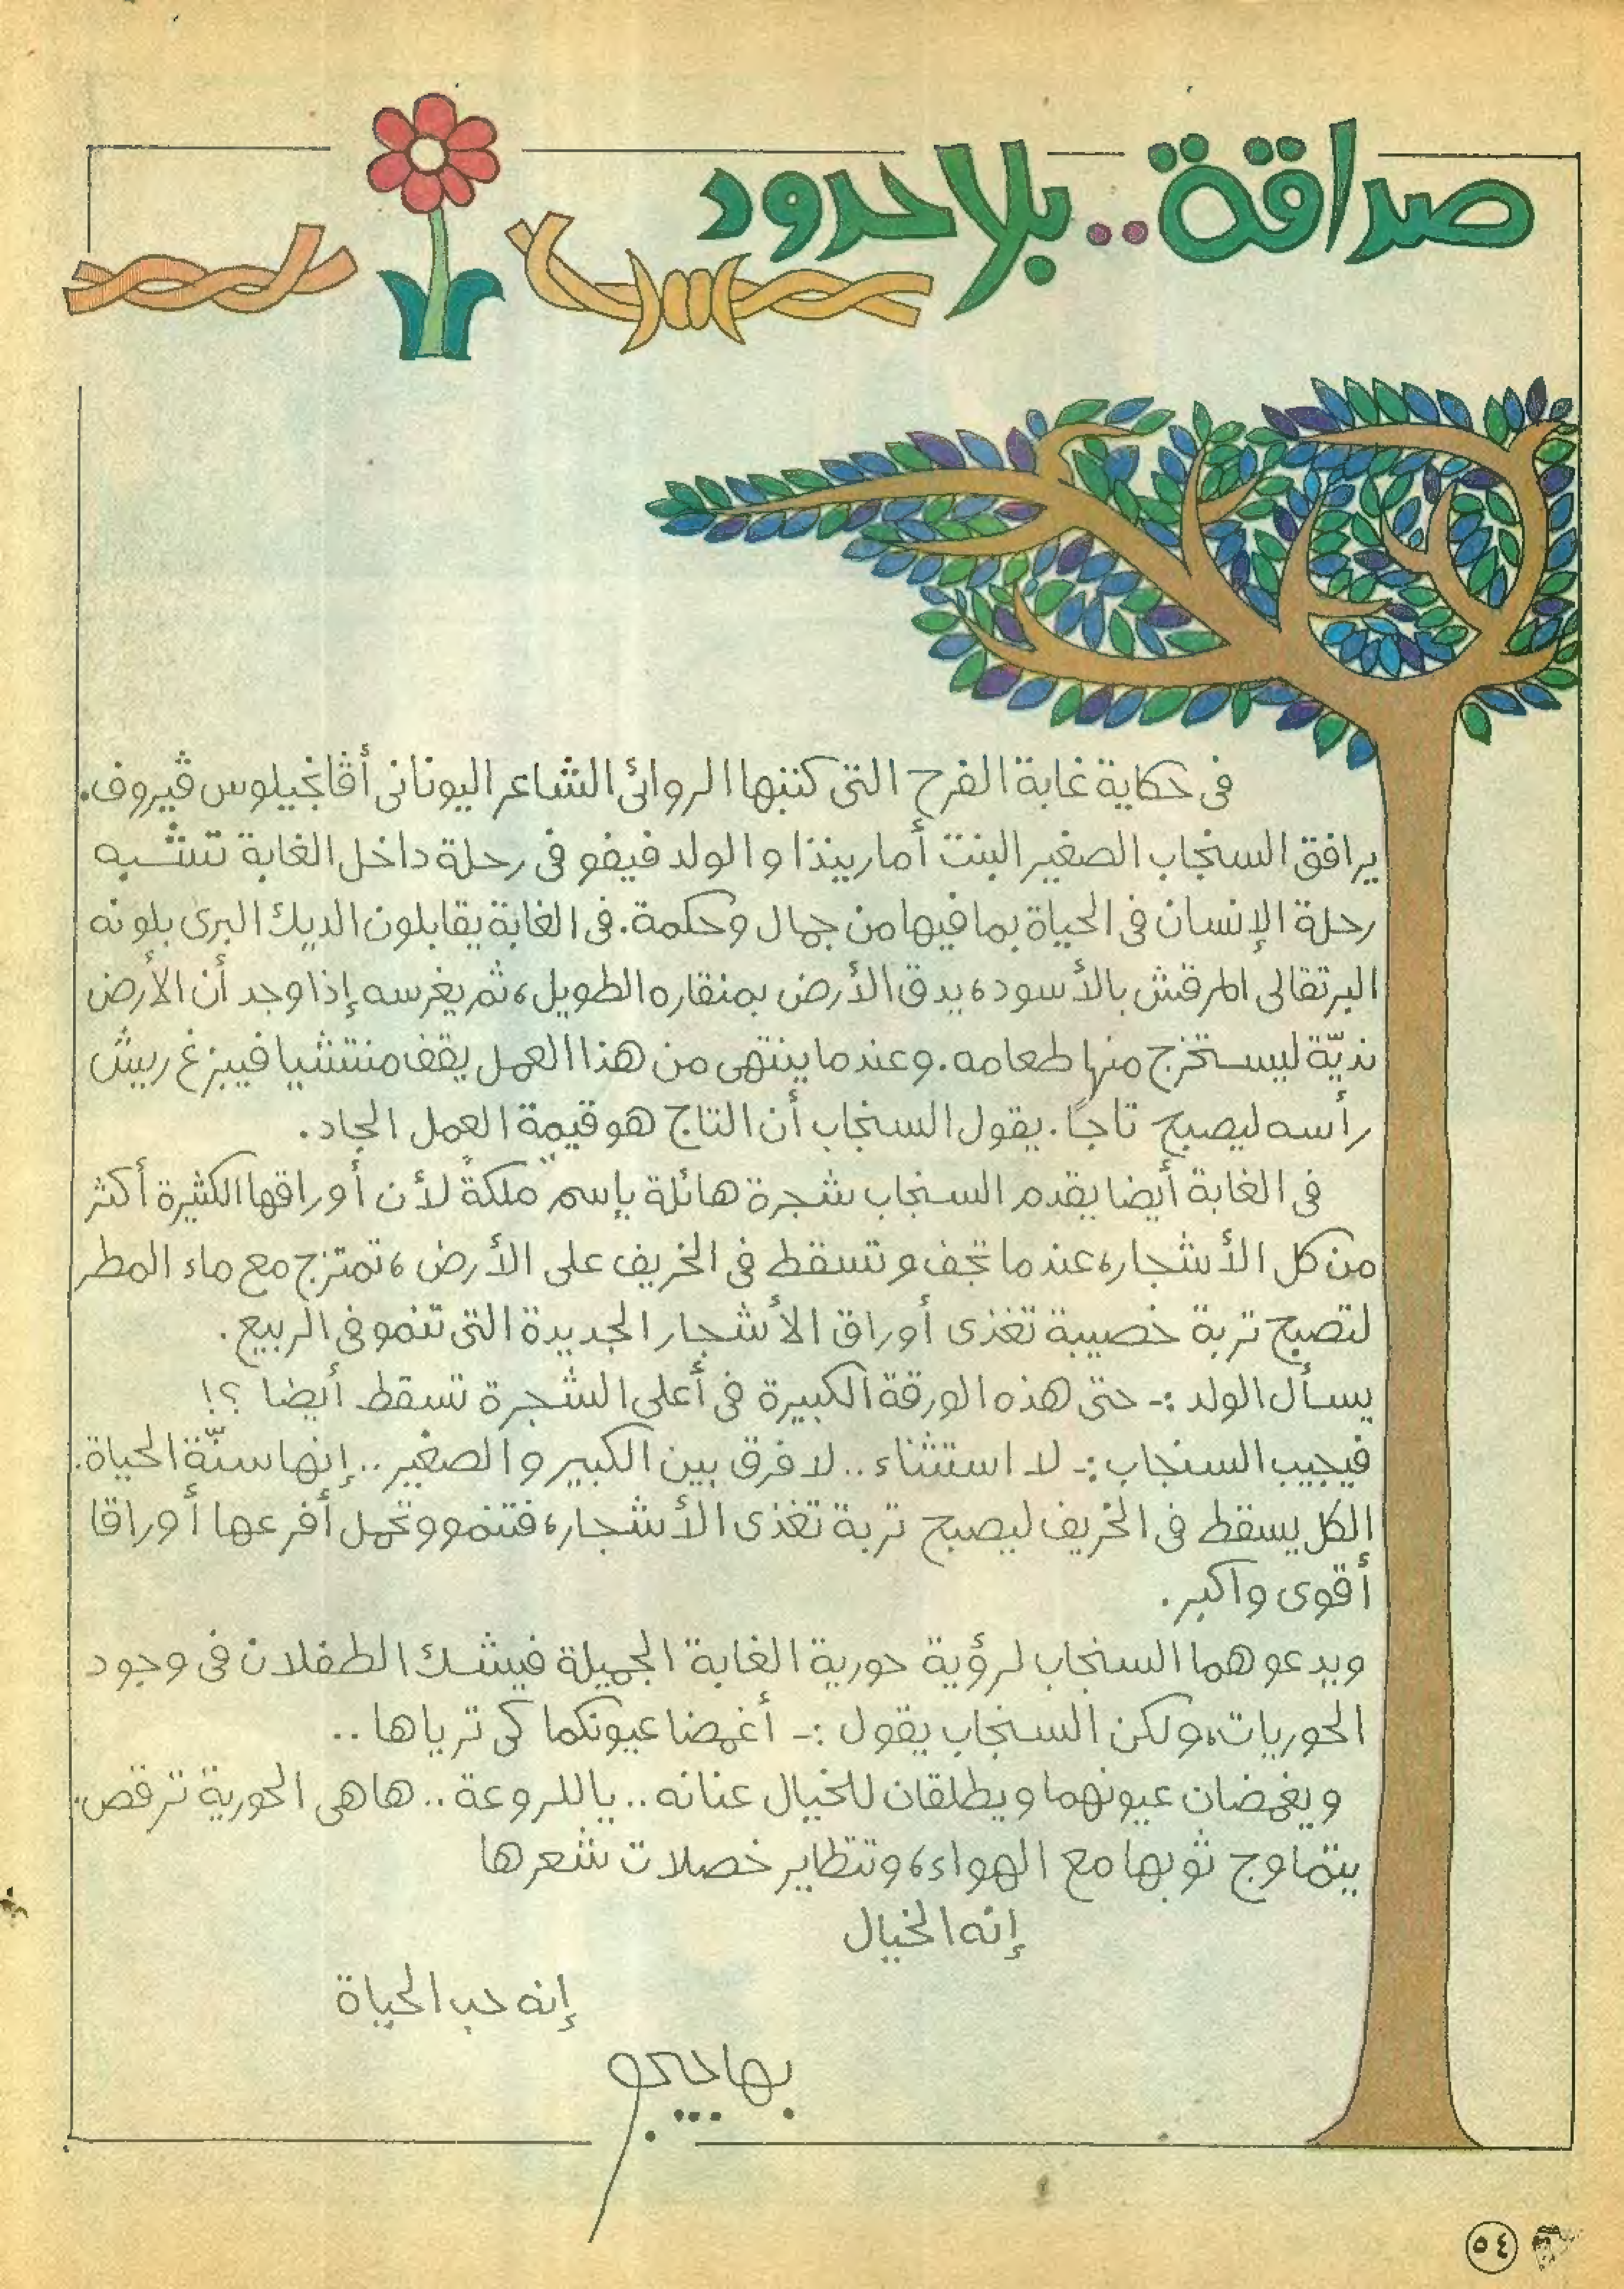 صداقة.. بلا حدود
فى حكاية غابة الفرح التى كتبها الروائى الشاعر اليونانى أڤانجيلوس ڤيروف.
يرافق السنجاب الصغير البنت أماريندا والولد فيفو فى رحلة داخل الغابة تشبه
رحلة الإنسان فى الحياة بما فيها من جمال وحكمة. فى الغابة يقابلون الديك البرى بلونه
البرتقالى المرقش بالأسود، يدق الأرض بمنقاره الطويل، ثم يغرسه إذا وجد أن الأرض
نديّة ليستخرج منها طعامه. وعندما ينتهى من هذا العمل يقف منتشيا فيبزغ ريش
رأسه ليصبح تاجًا. يقول السنجاب أن التاج هو قيمة العمل الجاد.
فى الغابة أيضا يقدم السنجاب شجرة هائلة بإسم "ملكة" لأن أوراقها الكثيرة أكثر
من كل الأشجار، عندما تجف وتسقط فى الخريف على الأرض، تمتزج مع ماء المطر
لتصبح تربة خصيبة تغذى أوراق الأشجار الجديدة التى تنمو فى الربيع.
يسأل الولد :- حتى هذه الورقة الكبيرة فى أعلى الشجرة تسقط أيضا ؟!
فيجيب السنجاب :- لا استثناء .. لا فرق بين الكبير والصغير .. إنها سنّة الحياة.
الكل يسقط فى الخريف ليصبح تربة تغذى الأشجار، فتنمو وتحمل أفرعها أوراقا
أقوى وأكبر.
ويدعوهما السنجاب لرؤية حورية الغابة الجميلة فيشك الطفلان فى وجود
الحوريات، ولكن السنجاب يقول :- أغمضا عيونكما كى ترياها ..
ويغمضان عيونهما ويطلقان للخيال عنانه .. ياللروعة .. هاهى الحورية ترقص.
يتماوج ثوبها مع الهواء، وتتطاير خصلات شعرها
إنه الخيال
إنه حب الحياة
٥٤